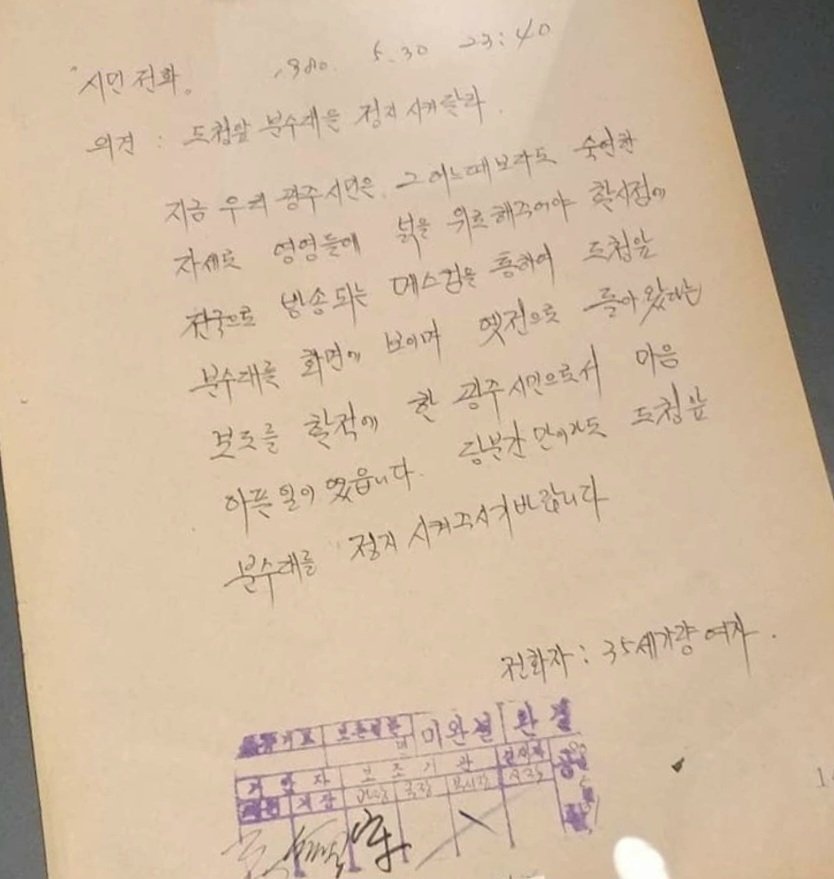 시민 전화。 1980. 5.30 23:40
의견 : 도청앞 분수대를 정지 시켜달라.
지금 우리 광주시민은 그 어느때보라도 숙연한
자세로 영영들에 넋을 위로해주어야 할시점에
전국으로 방송되는 매스컴을 통하여 도청앞
분수대를 화면에 보이며 옛전으로 돌아왔다는
보도를 할적에 한 광주시민으로서 마음
아픈일이였읍니다. 당분간 만이라도 도청앞
분수대를 정지 시켜주시기바랍니다
전화자 : 35세가량 여자.
보존기간 미완결 완결
기안자 보조기관
계장 과장 국장 부시장 시장